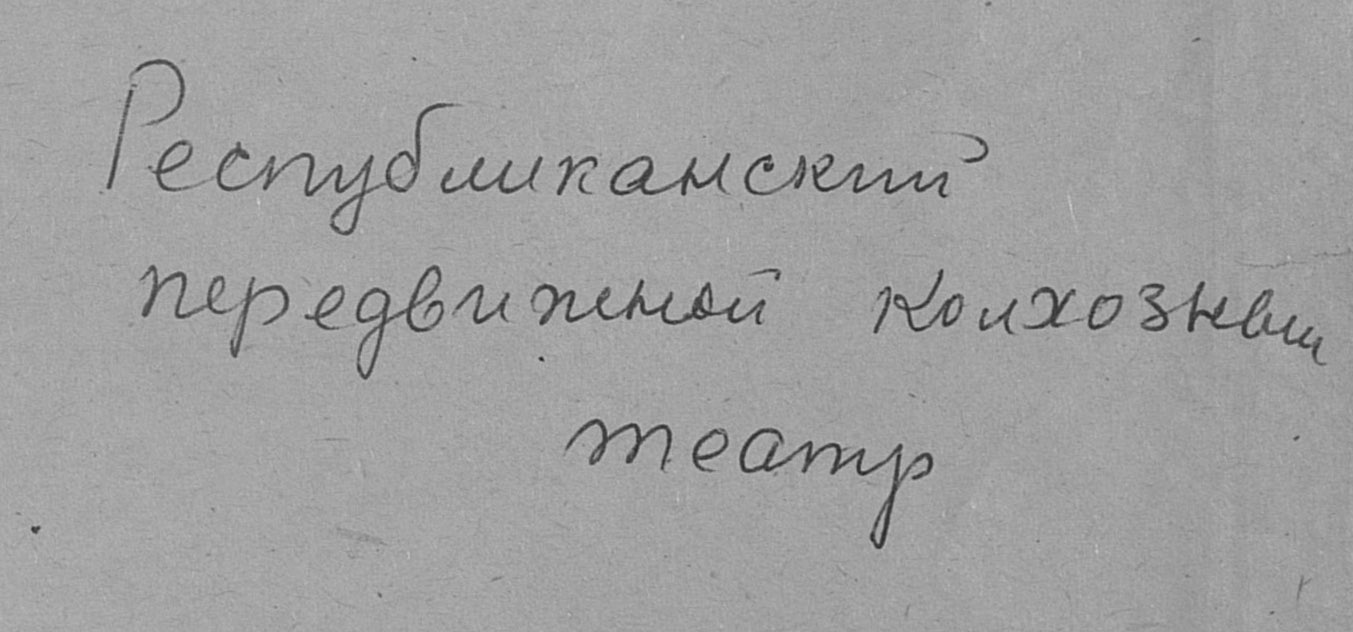 Республиканский
передвижной колхозный
театр